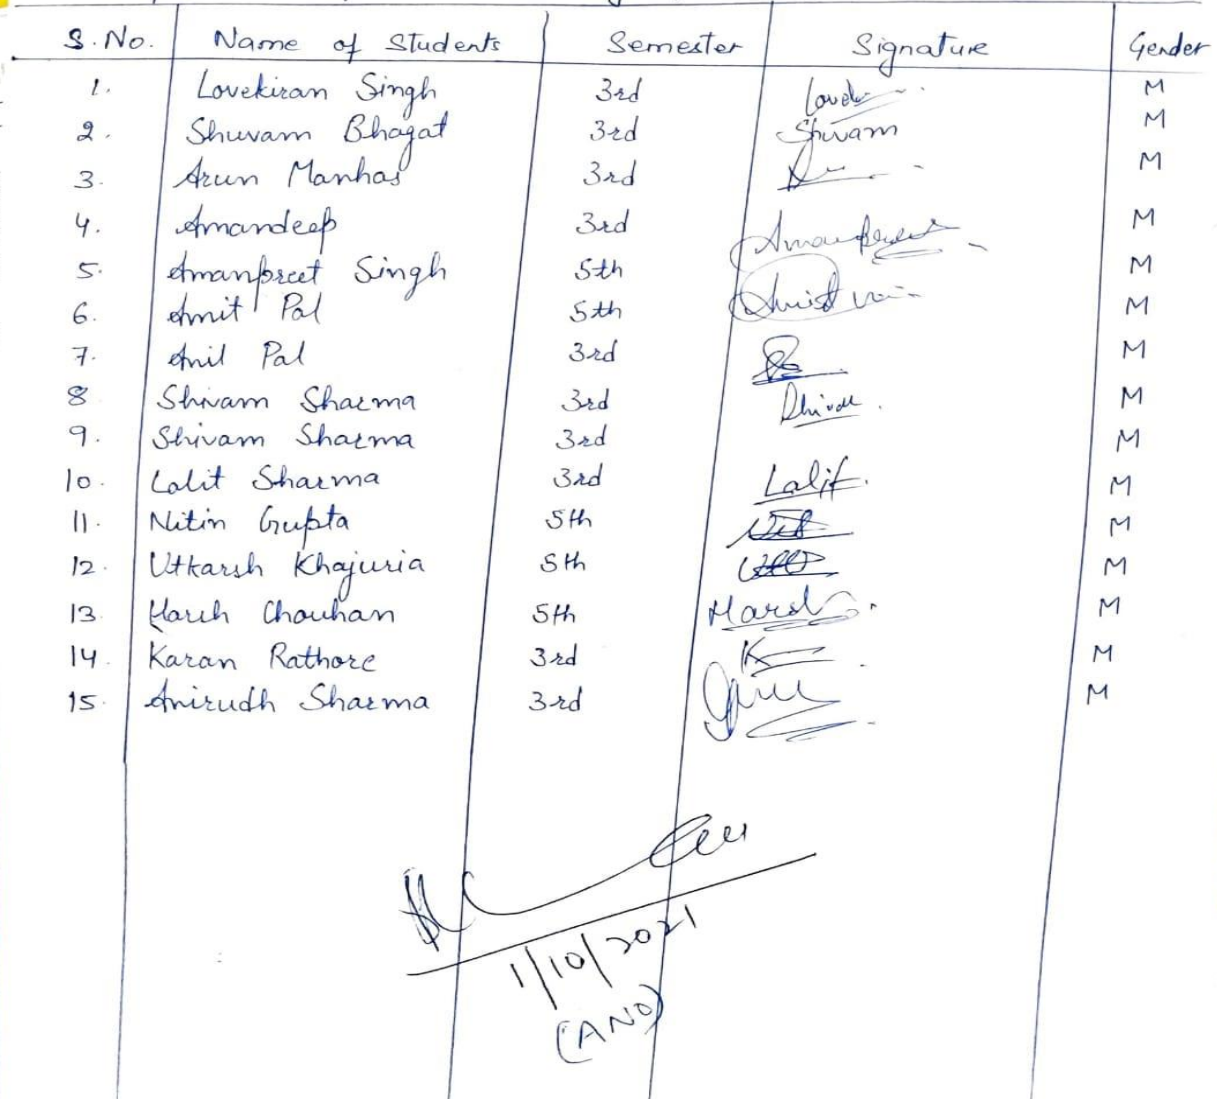 S.No. Name of Students Semester Signature Gender
1. Lovekiran Singh 3rd M
2. Shuvam Bhagat 3rd Shuvam M
3. Arun Manhas 3rd M
4. Amandeep 3rd M
5. Amanpreet Singh 5th Amanpreet M
6. Amit Pal 5th M
7. Anil Pal 3rd M
8 Shivam Sharma 3rd M
9. Shivam Sharma 3rd M
10. Lalit Sharma 3rd Lalit. M
11. Nitin Gupta 5th M
12. Utkarsh Khajuria 5th M
13. Harsh Chouhan 5th Harsh M
14. Karan Rathore 3rd M
15. Anirudh Sharma 3rd M
1/10/2021
(ANO)